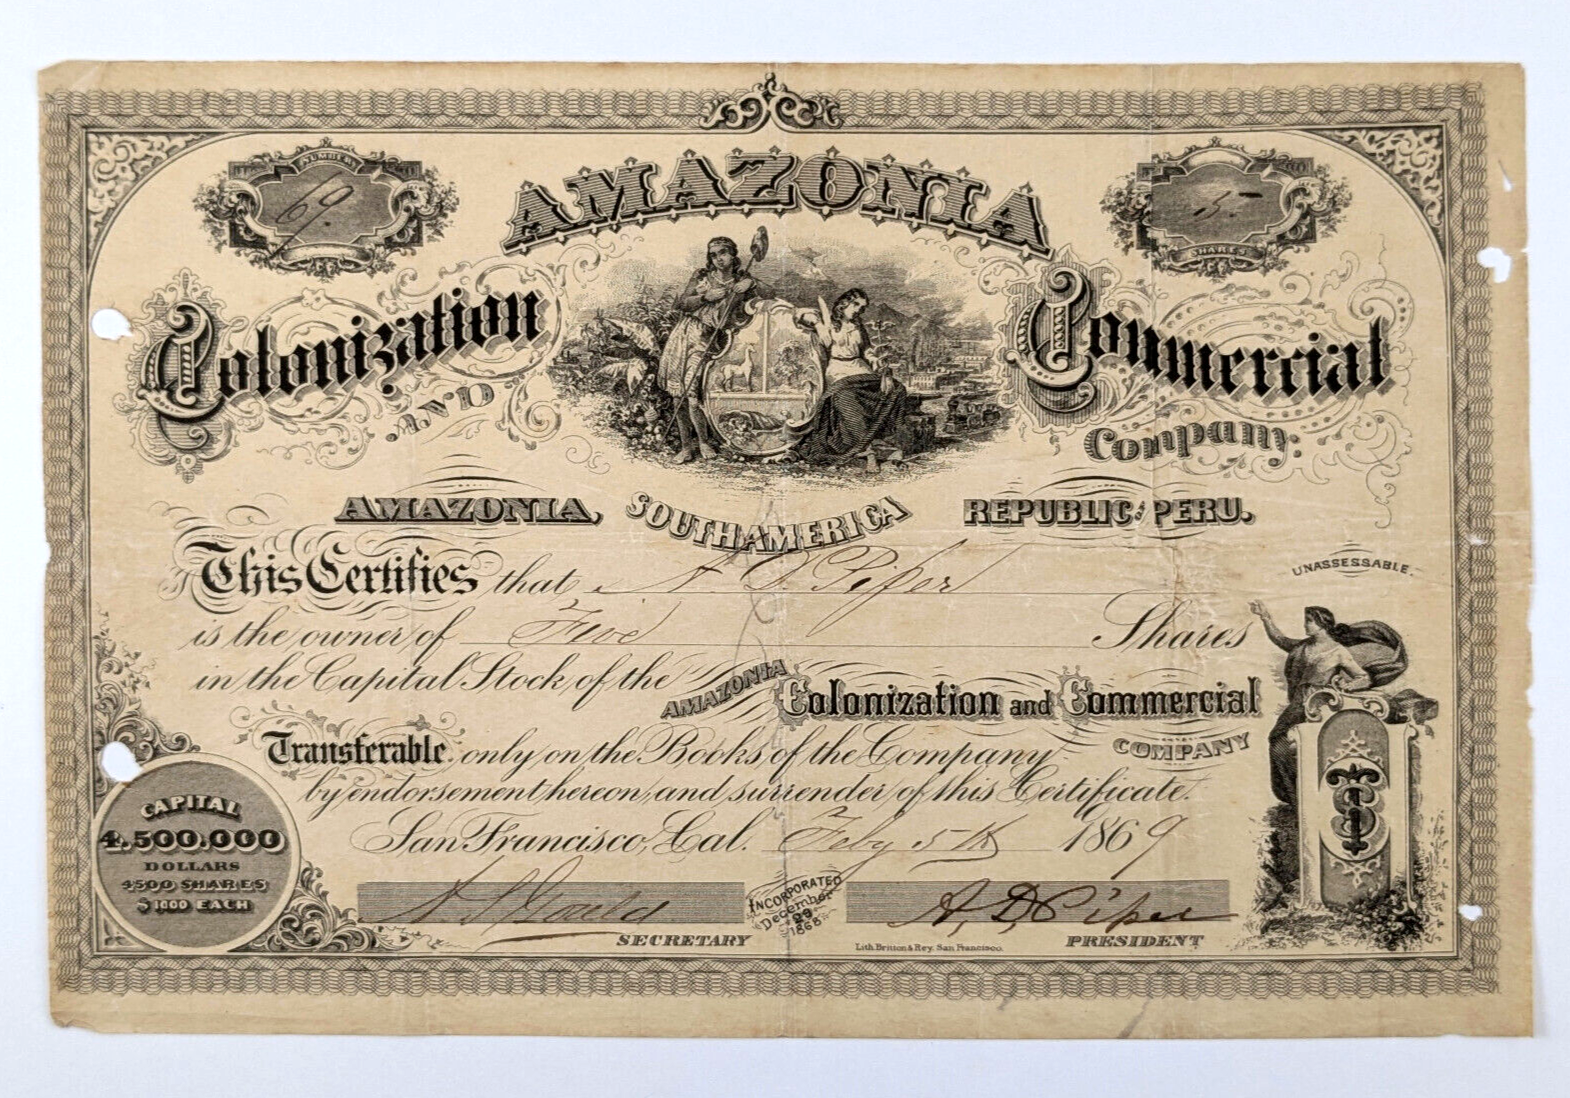 NUMBER
69.
5
SHARES
AMAZONIA
Colonization
AND
Commercial
Company:
AMAZONIA, SOUTH AMERICA REPUBLIC PERU.
This Certifies that A. D. Piper
UNASSESSABLE.
is the owner of Five Shares
in the Capital Stock of the AMAZONIA Colonization and Commercial
COMPANY
Transferable only on the Books of the Company
by endorsement hereon, and surrender of this Certificate.
San Francisco, Cal. Feby 5th 1869
CAPITAL
4,500,000
DOLLARS
4500 SHARES
$1000 EACH
INCORPORATED
December
29
1868
Gould
SECRETARY
A. D. Piper
PRESIDENT
Lith. Britton & Rey. San Francisco.